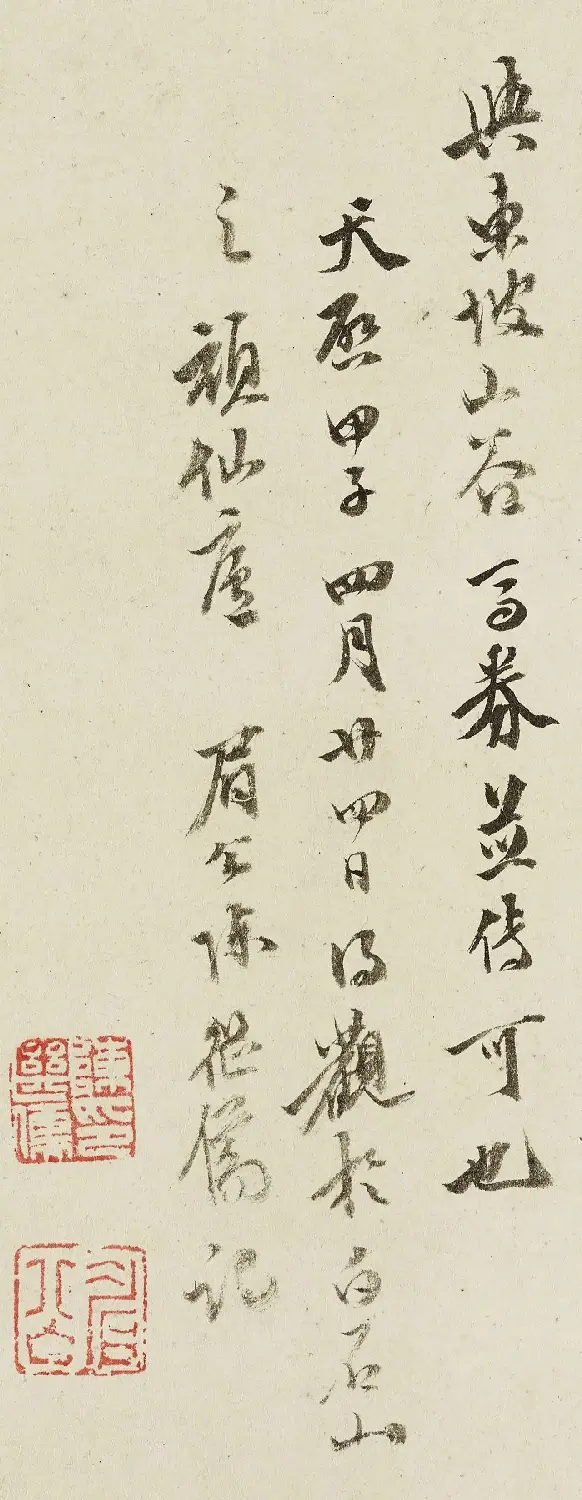 與東坡山谷馬券並傳可也
天啟甲子四月廿四日得觀於白石山
之頑仙廬 眉公陳繼儒記
陳印繼儒